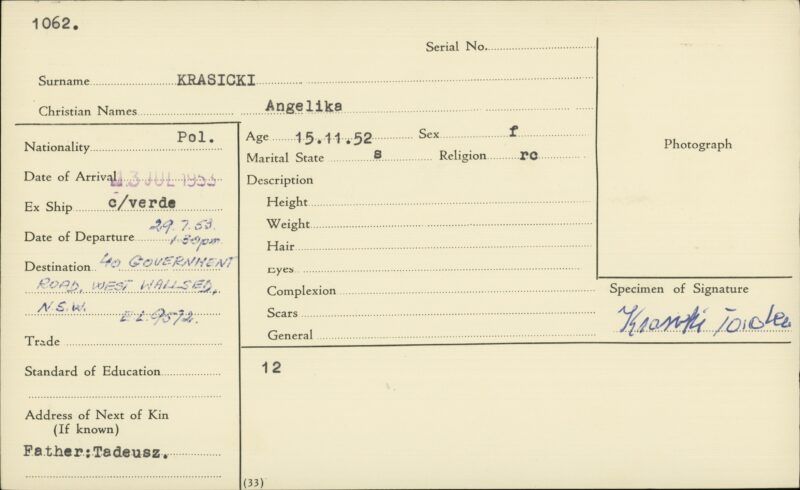 1062.
Serial No.
Surname KRASICKI
Christian Names Angelika
Nationality Pol.
Date of Arrival 13 JUL 1953
Ex Ship c/verde
Date of Departure 29.7.53. 1.30pm
Destination 40 GOVERNMENT
ROAD, WEST WALLSED,
N.S.W. E.L. 9572.
Trade
Standard of Education
Address of Next of Kin
(If known)
Father:Tadeusz.
Age 15.11.52 Sex f
Marital State s Religion rc
Description
Height
Weight
Hair
Eyes
Complexion
Scars
General
12
(33)
Photograph
Specimen of Signature